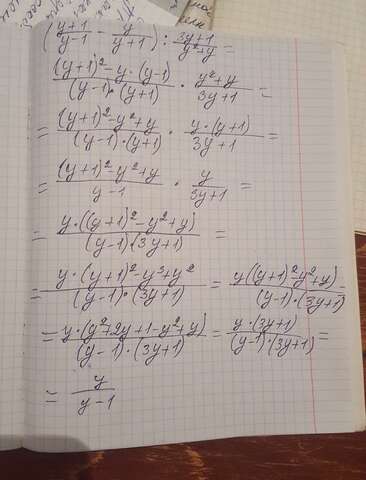 ( (y+1)/(y-1) - y/(y+1) ) : (3y+1)/(y²+y) =
((y+1)²-y·(y-1))/((y-1)·(y+1)) · (y²+y)/(3y+1) =
= ((y+1)²-y²+y)/((y-1)·(y+1)) · (y·(y+1))/(3y+1) =
= ((y+1)²-y²+y)/(y-1) · y/(3y+1) =
= (y·((y+1)²-y²+y))/((y-1)·(3y+1)) =
= (y·(y+1)²-y³+y²)/((y-1)·(3y+1)) = (y((y+1)²-y²+y))/((y-1)·(3y+1)) =
= (y·(y²+2y+1-y²+y))/((y-1)·(3y+1)) = (y·(3y+1))/((y-1)·(3y+1)) =
= y/(y-1)